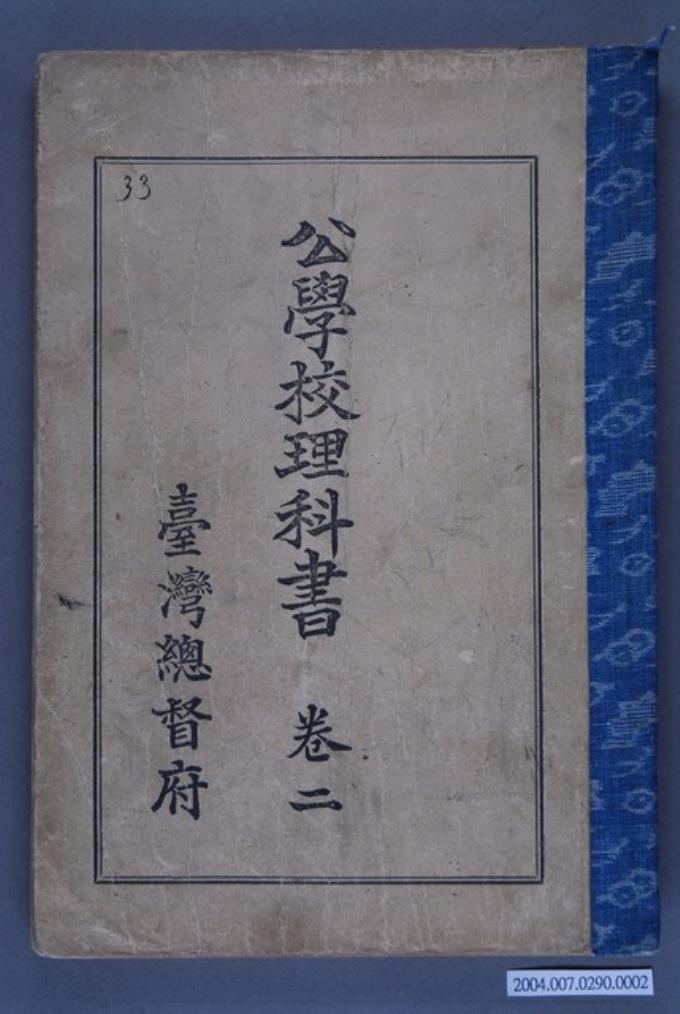 33
公學校理科書 卷二
臺灣總督府
2004.007.0290.0002